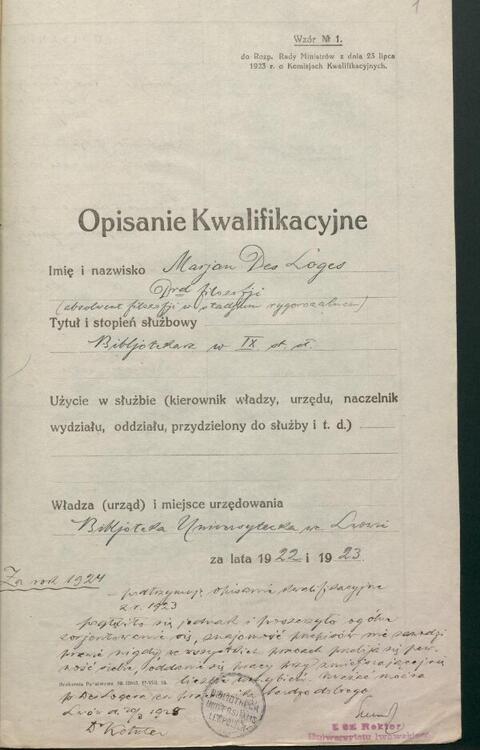 1
Wzór № 1.
do Rozp. Rady Ministrów z dnia 25 lipca
1923 r. o Komisjach Kwalifikacyjnych.
Opisanie Kwalifikacyjne
Imię i nazwisko Marjan Des Loges
Drd filozofji
(absolwent filozofji w stadjum rygorozalnem)
Tytuł i stopień służbowy
Bibljotekarz w IX. st. sł.
Użycie w służbie (kierownik władzy, urzędu, naczelnik
wydziału, oddziału, przydzielony do służby i t. d.)
Władza (urząd) i miejsce urzędowania
Bibljoteka Uniwersytecka we Lwowie
za lata 1922 i 1923
Za rok 1924
podtrzymuję opisanie kwalifikacyjne
z r. 1923
się jednak i poszerzyło ogólne
zorjentowanie się, znajomość przepisów nie zawodzi
prawie nigdy, we wszystkich pracach
siebie, oddanie się pracy przy
liczbie
Des Logesa
Lwów d. 1925
Dr Kotula
BIBLIOTHECA
UNIVERSITATIS
LEOPOLIENSIS
Z cz Rektor
Uniwersytetu lwowskiego